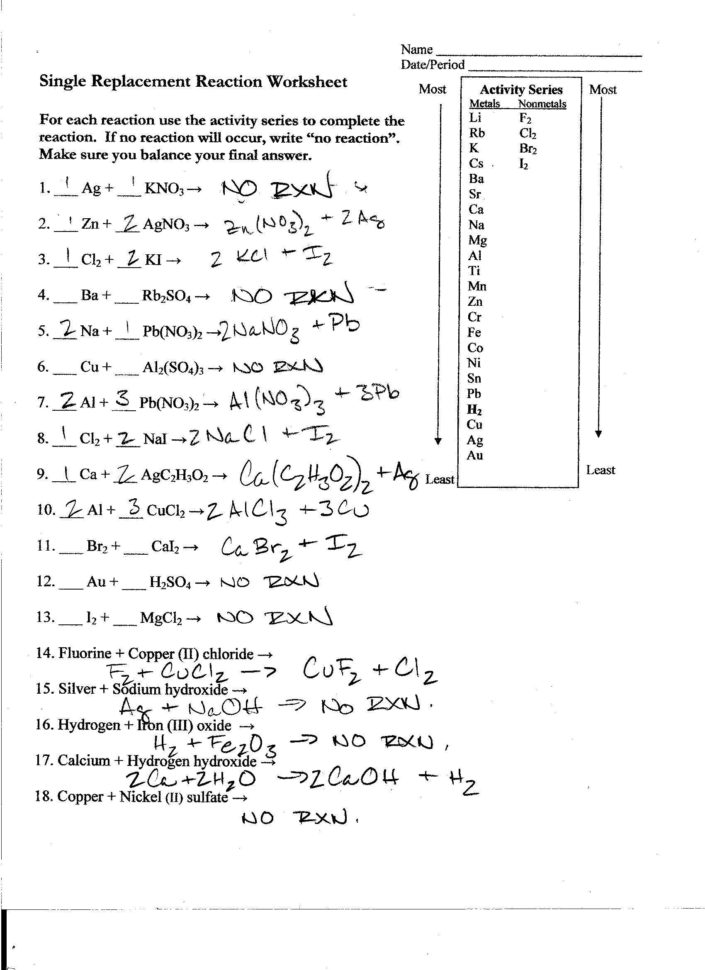 Name ____________
Date/Period ____________
Single Replacement Reaction Worksheet
For each reaction use the activity series to complete the
reaction. If no reaction will occur, write “no reaction”.
Make sure you balance your final answer.
Most
Activity Series
Most
Metals Nonmetals
Li F₂
Rb Cl₂
K Br₂
Cs I₂
Ba
Sr
Ca
Na
Mg
Al
Ti
Mn
Zn
Cr
Fe
Co
Ni
Sn
Pb
H₂
Cu
Ag
Au
Least
Least
1. 1 Ag + 1 KNO₃ → NO RXN
2. 1 Zn + 2 AgNO₃ → Zn(NO₃)₂ + 2 Ag
3. 1 Cl₂ + 2 KI → 2 KCl + I₂
4. ___ Ba + ___ Rb₂SO₄ → NO RXN
5. 2 Na + 1 Pb(NO₃)₂ → 2NaNO₃ + Pb
6. ___ Cu + ___ Al₂(SO₄)₃ → NO RXN
7. 2 Al + 3 Pb(NO₃)₂ → Al(NO₃)₃ + 3Pb
8. 1 Cl₂ + 2 NaI → 2 NaCl + I₂
9. 1 Ca + 2 AgC₂H₃O₂ → Ca(C₂H₃O₂)₂ + Ag
10. 2 Al + 3 CuCl₂ → 2 AlCl₃ + 3Cu
11. ___ Br₂ + ___ CaI₂ → CaBr₂ + I₂
12. ___ Au + ___ H₂SO₄ → NO RXN
13. ___ I₂ + ___ MgCl₂ → NO RXN
14. Fluorine + Copper (II) chloride →
F₂ + CuCl₂ → CuF₂ + Cl₂
15. Silver + Sodium hydroxide →
Ag + NaOH → No RXN.
16. Hydrogen + Iron (III) oxide →
H₂ + Fe₂O₃ → NO RXN,
17. Calcium + Hydrogen hydroxide →
2Ca + 2H₂O → 2CaOH + H₂
18. Copper + Nickel (II) sulfate →
NO RXN.